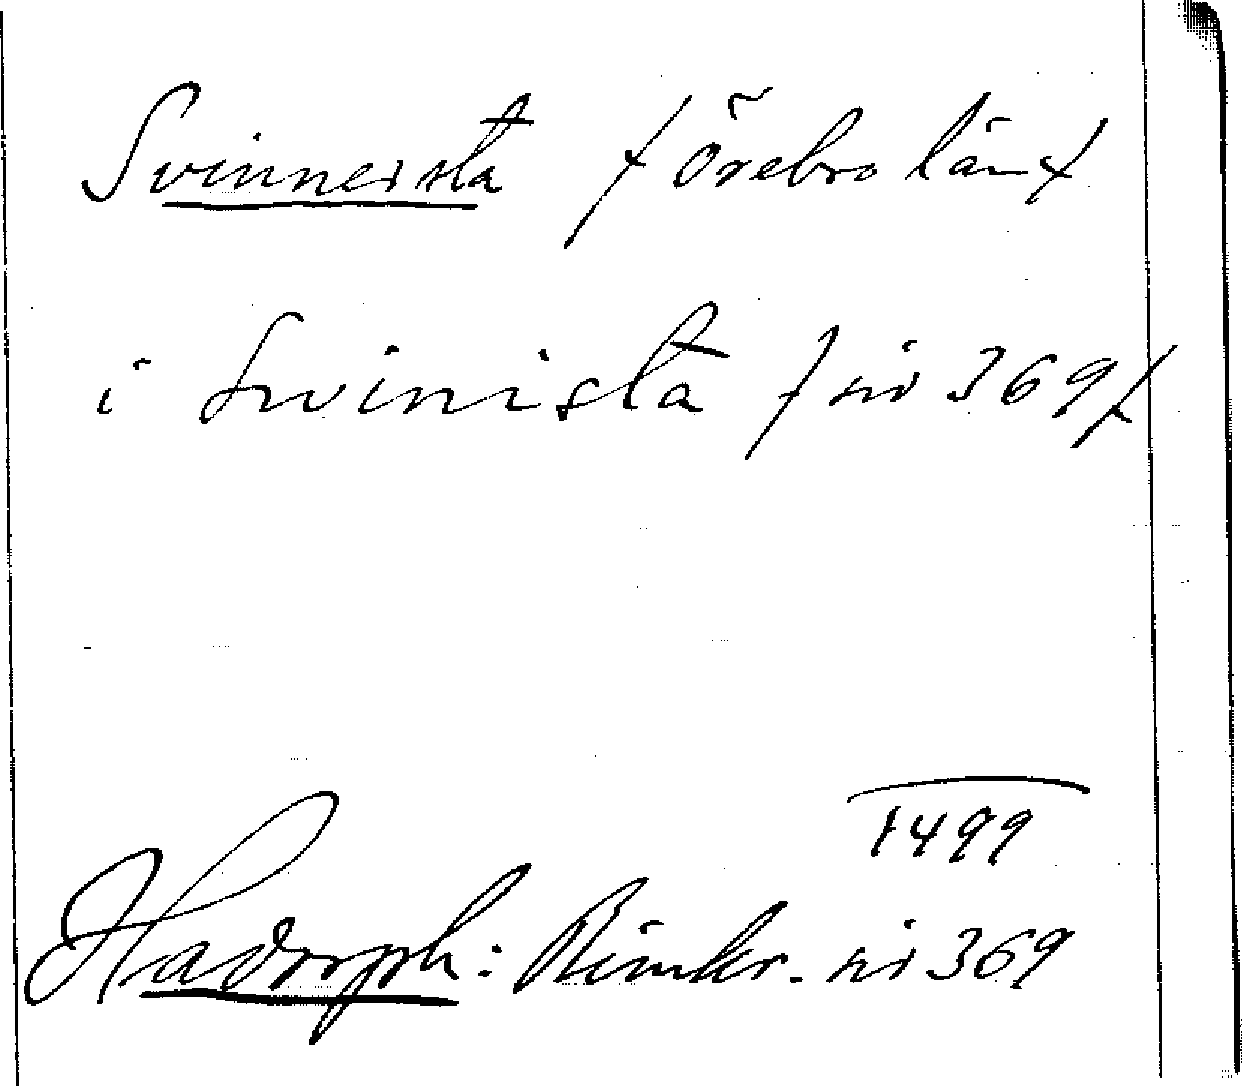 Svinnersta / Örebro län /
i Svinista / sid 369 /
1499
Hadorph: Rimkr. sid 369